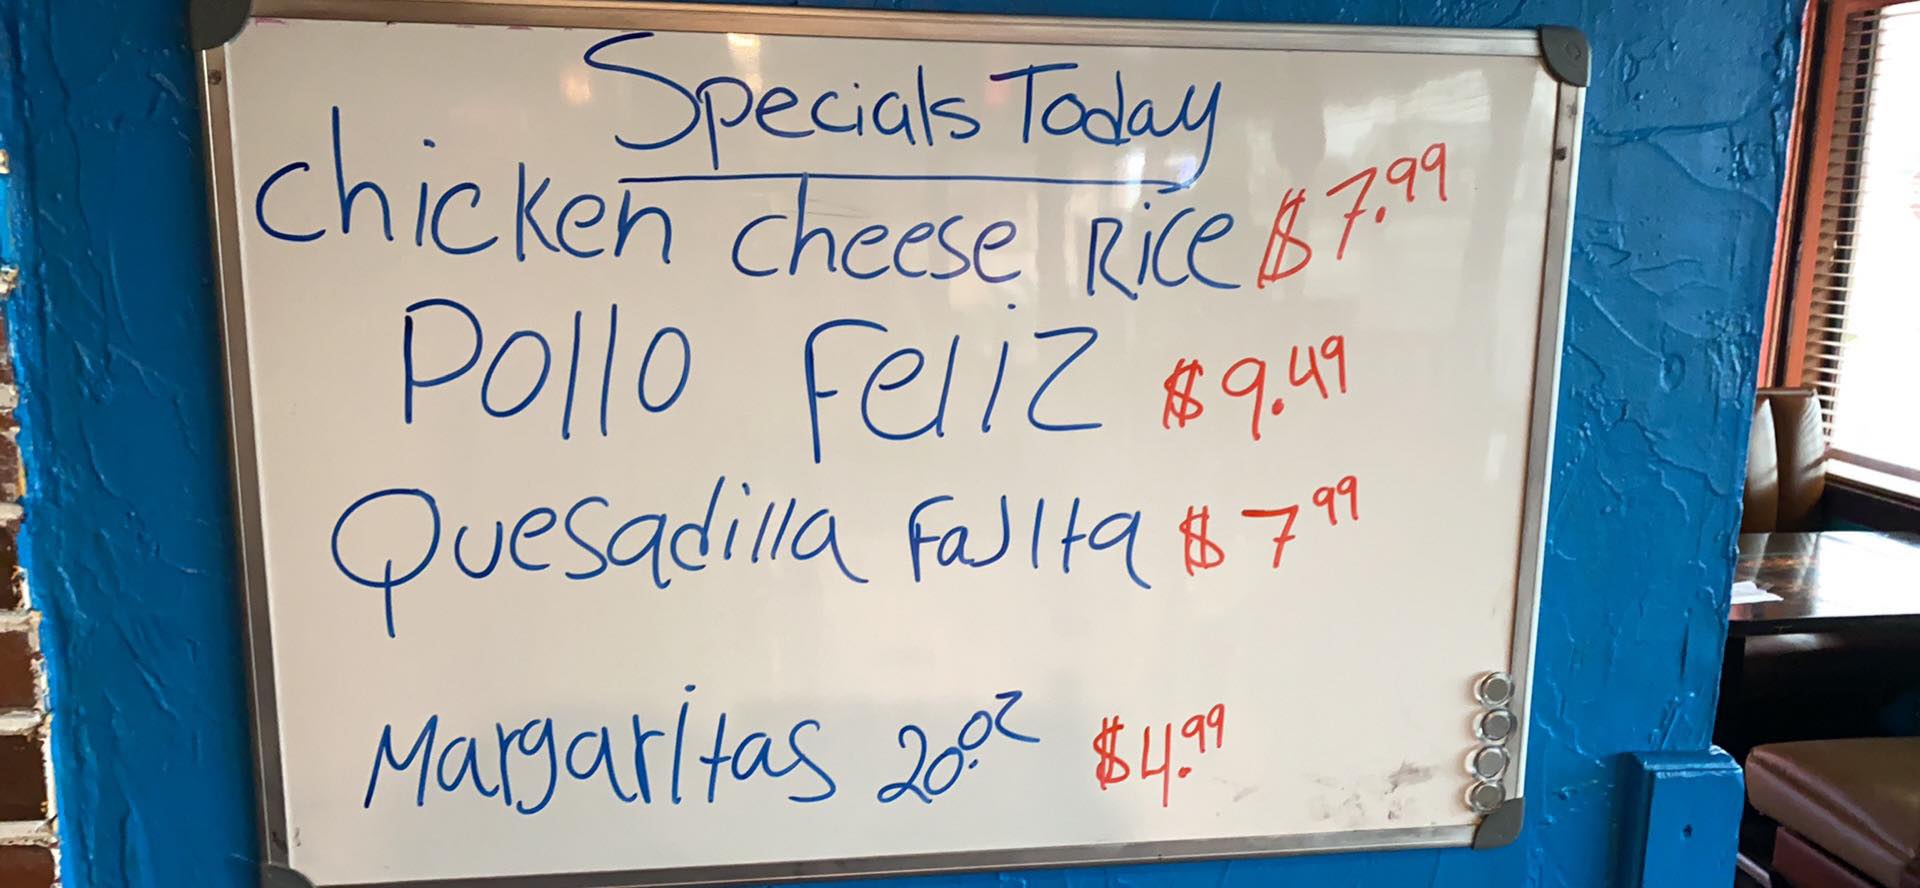 Specials Today
Chicken cheese Rice $7.99
Pollo Feliz $9.49
Quesadilla FaJIta $7 99
MargarItas 20.oz $4.99